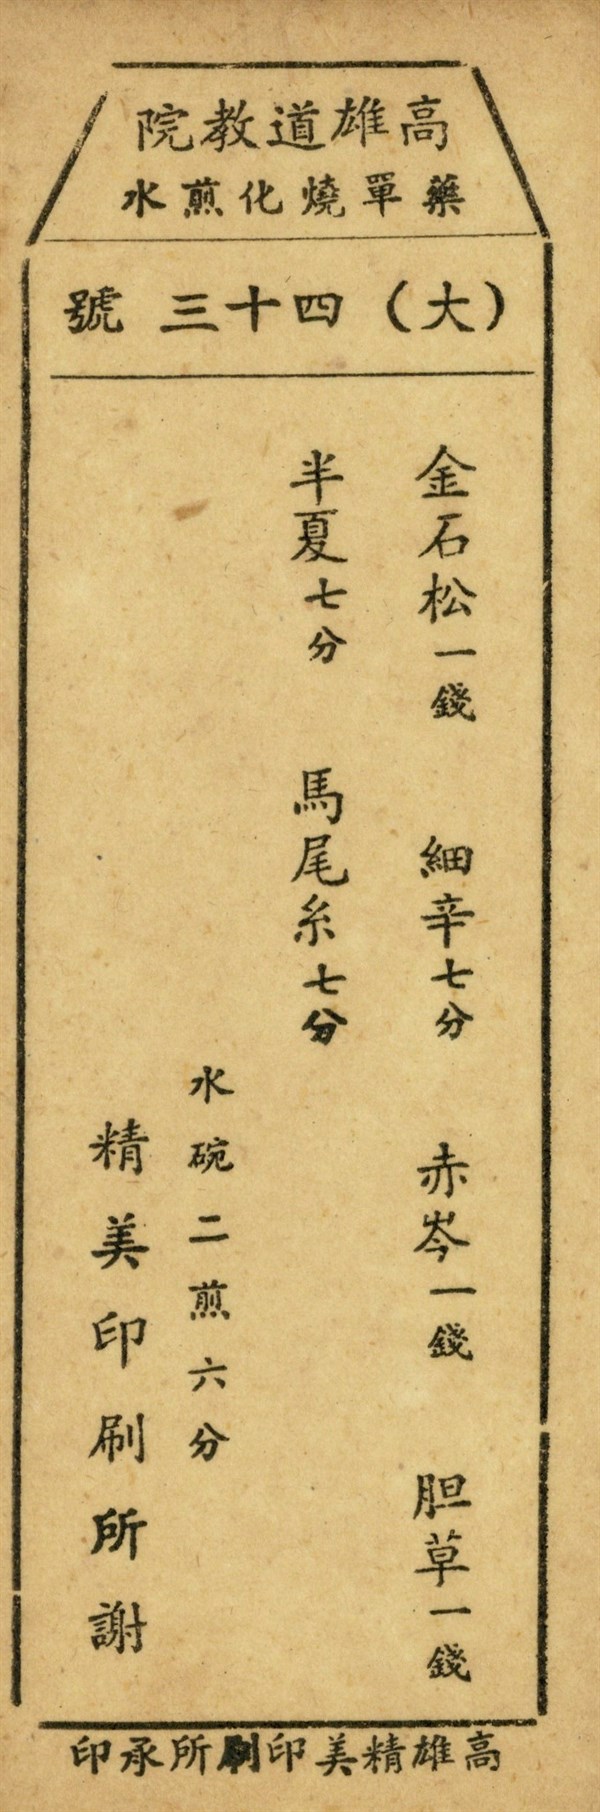 高雄道教院
藥單燒化煎水
（大）四十三號
金石松一錢　細辛七分　赤岑一錢　胆草一錢
半夏七分　馬尾糸七分
水碗二煎六分
精美印刷所謝
高雄精美印刷所承印